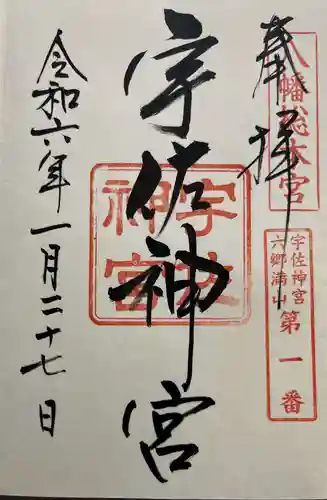 奉拝
八幡総本宮
宇佐神宮
六郷満山
第一番
宇佐神宮
宇佐
神宮
令和六年一月二十七日